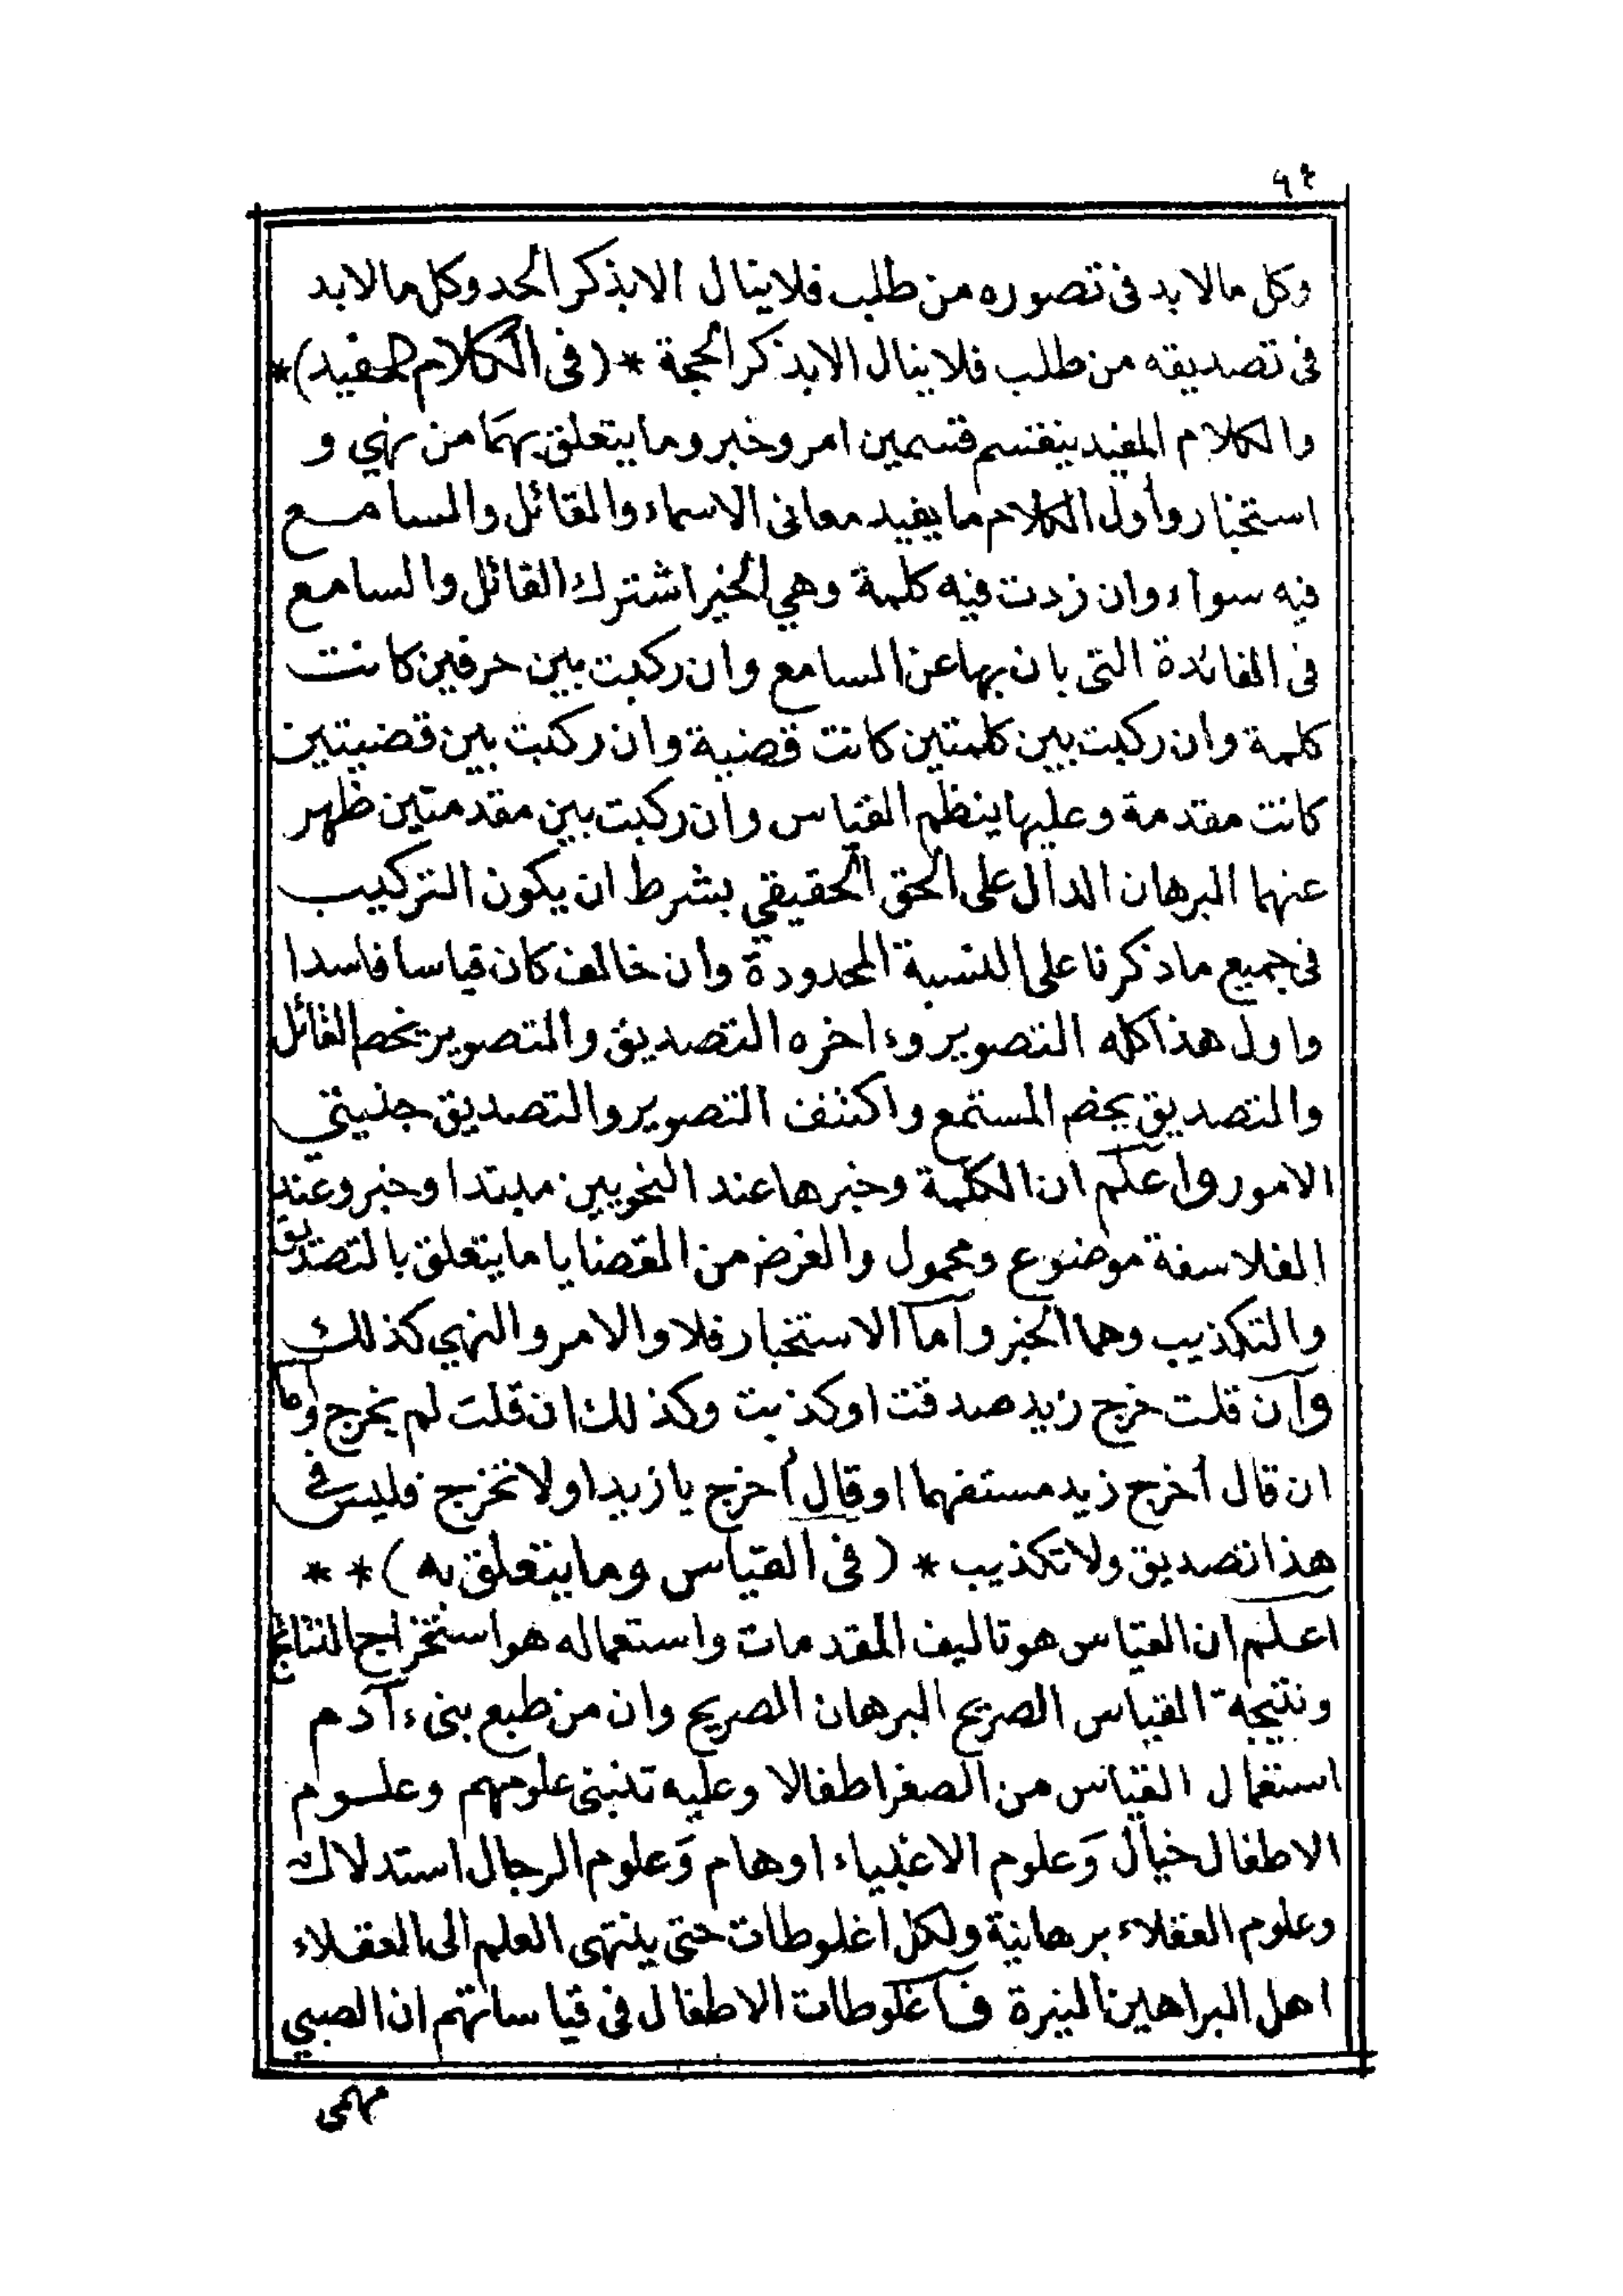 وكل ما لا بد فى تصوره من طلب فلا ينال الا بذكر الحد وكل ما لا بد
فى تصديقه من طلب فلا ينال الا بذكر الحجة * (فى الكلام المفيد) *
والكلام المفيد ينقسم قسمين امر وخبر وما يتعلق بهما من نهي و
استخبار وأول الكلام ما يفيد معانى الاسماء والقائل والسامع
فيه سواء وان زدت فيه كلمة وهي الخبر اشترك القائل والسامع
فى الفائدة التى بان بها عن السامع وان ركبت بين حرفين كانت
كلمة وان ركبت بين كلمتين كانت قضية وان ركبت بين قضيتين
كانت مقدمة وعليها ينظم القياس وان ركبت بين مقدمتين ظهر
عنهما البرهان الدال على الحق الحقيقي بشرط ان يكون التركيب
فى جميع ما ذكرنا على النسبة المحدودة وان خالف كان قياسا فاسدا
واول هذا كله التصوير وءاخره التصديق والتصوير يخص القائل
والتصديق يخص المستمع واكتنف التصوير والتصديق جنبتي
الامور واعلم ان الكلمة وخبرها عند النحويين مبتدا وخبر وعند
الفلاسفة موضوع ومحمول والغرض من القضايا ما يتعلق بالتصديق
والتكذيب وهما الخبر وأما الاستخبار فلا والامر والنهي كذلك
وان قلت خرج زيد صدقت او كذبت وكذلك ان قلت لم يخرج وأما
ان قال أخرج زيد مستفهما او قال أخرج يا زيد او لا تخرج فليس في
هذا تصديق ولا تكذيب * (فى القياس وما يتعلق به) * *
اعلم ان القياس هو تاليف المقدمات واستعماله هو استخراج النتائج
ونتيجة القياس الصريح البرهان الصريح وان من طبع بنى ءآدم
استعمال القياس من الصغر اطفالا وعليه تنبنى علومهم وعلوم
الاطفال خيال وَعلوم الاغبياء اوهام وَعلوم الرجال استدلالات
وعلوم العقلاء برهانية ولكل اغلوطات حتى ينتهى العلم الى العقلاء
اهل البراهين النيرة فاغلوطات الاطفال فى قياساتهم ان الصبي